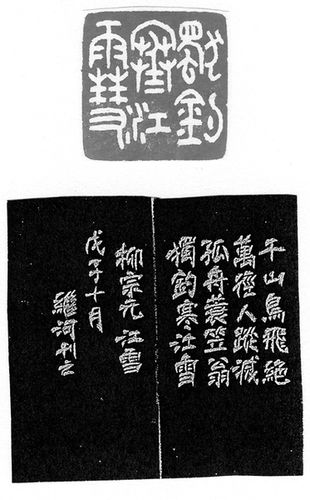 獨釣
寒江
雪
千山鳥飛絕
萬徑人蹤滅
孤舟蓑笠翁
獨釣寒江雪
柳宗元 江雪
戊子十月
繼河刊之